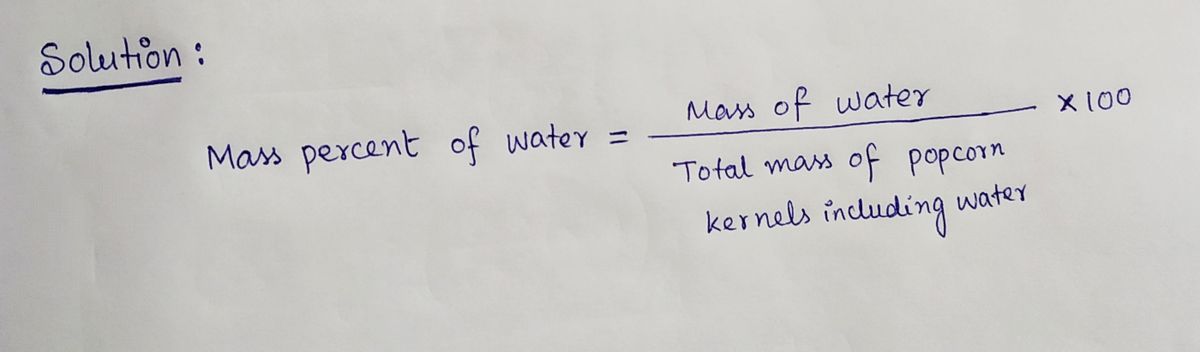 Solution :
Mass percent of water = Mass of water × 100
Total mass of popcorn
kernels including water